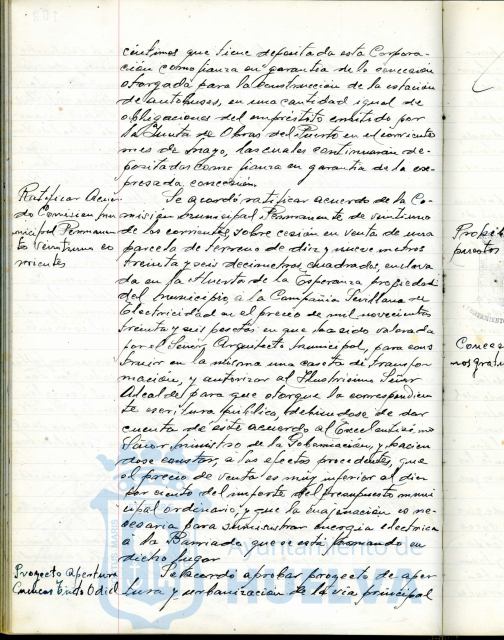 céntimos que tiene depositada esta Corpora-
ción como fianza en garantía de la concesión
otorgada para la construcción de la estación
de autobuses, en una cantidad igual de
obligaciones del empréstito emitido por
la Junta de Obras del Puerto en el corriente
mes de mayo, las cuales continuarán de-
positadas como fianza en garantía de la ex-
presada concesión.
Ratificar Acuer-
do Comisión Mu-
nicipal Permanen-
te veintiuno co-
rrientes
Se acordó ratificar acuerdo de la Co-
misión Municipal Permanente de veintiuno
de los corrientes, sobre cesión en venta de una
parcela de terreno de diez y nueve metros
treinta y seis decímetros cuadrados, enclava
da en la Huerta de la Esperanza propiedad
del Municipio, a la Compañía Sevillana de
Electricidad en el precio de mil novecientas
treinta y seis pesetas en que ha sido valorada
por el Señor Arquitecto Municipal, para cons
truir en la misma una caseta de transfor-
mación, y autorizar al Ilustrísimo Señor
Alcalde para que otorgue la correspondien
te escritura pública, debiéndose de dar
cuenta de este acuerdo al Excelentísimo
Señor Ministro de la Gobernación, y hacien
dose constar, a los efectos procedentes, que
el precio de venta es muy inferior al diez
por ciento del importe del presupuesto muni
cipal ordinario, y que la enajenación es ne-
cesaria para suministrar energía eléctrica
a la Barriada que se está formando en
dicho lugar
Proyecto Apertura
Se acordó aprobar proyecto de aper
tura y urbanización de la vía principal
Ayuntamiento de
HUELVA